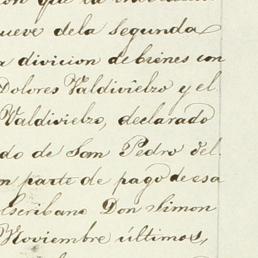 ueve dela segunda
a divicion de bienes con
Dolores Valdivielzo y el
Valdivielzo, declarado
do de San Pedro del
n parte de pago de esa
escribano Don Simon
Noviembre últimos,